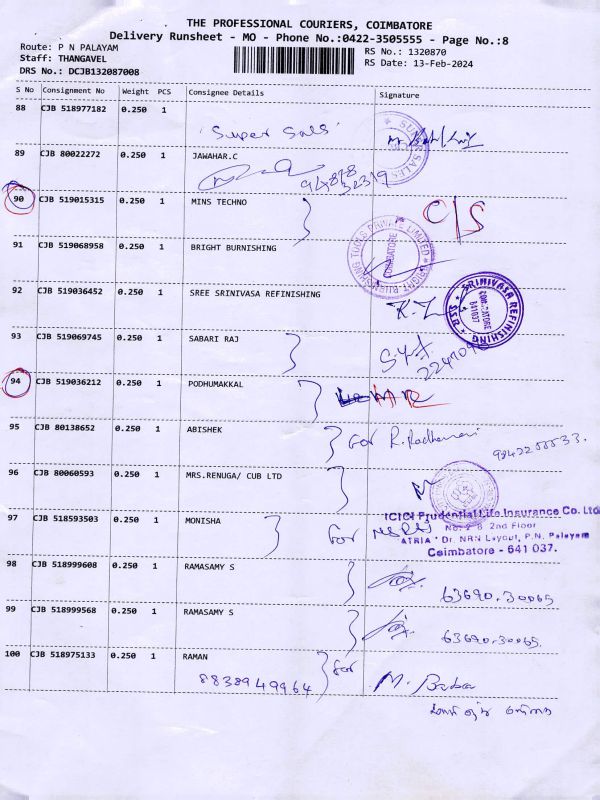 THE PROFESSIONAL COURIERS, COIMBATORE
Delivery Runsheet - MO - Phone No.:0422-3505555 - Page No.:8
Route: P N PALAYAM
RS No.: 1320870
Staff: THANGAVEL
RS Date: 13-Feb-2024
DRS No.: DCJB132087008
S No Consignment No Weight PCS Consignee Details Signature
88 CJB 518977182 0.250 1
Super Sales
89 CJB 80022272 0.250 1 JAWAHAR.C
90 CJB 519015315 0.250 1 MINS TECHNO C/S
91 CJB 519068958 0.250 1 BRIGHT BURNISHING
BRIGHT BURNISHING TOOLS PRIVATE LIMITED
COIMBATORE
92 CJB 519036452 0.250 1 SREE SRINIVASA REFINISHING
SRINIVASA REFINISHING
COIMBATORE
641037
93 CJB 519069745 0.250 1 SABARI RAJ
94 CJB 519036212 0.250 1 PODHUMAKKAL
95 CJB 80138652 0.250 1 ABISHEK for R. Radhamani
96 CJB 80060593 0.250 1 MRS.RENUGA/ CUB LTD
97 CJB 518593503 0.250 1 MONISHA for
ICICI Prudential Life Insurance Co. Ltd
2nd Floor
ATRIA Dr. NRN Layout, P.N. Palayam
Coimbatore - 641 037.
98 CJB 518999608 0.250 1 RAMASAMY S
63690.30065
99 CJB 518999568 0.250 1 RAMASAMY S
63690.30065.
100 CJB 518975133 0.250 1 RAMAN for
8838949964 M. Baba